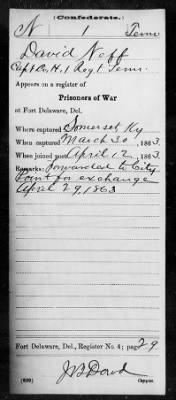 (Confederate.)
N 1 Tenn
David Neff
Capt Co. H, 1 Reg't Tenn.
Appears on a register of
Prisoners of War
at Fort Delaware, Del.
Where captured Somerset, Ky
When captured March 30, 1863.
When joined post April 12, 1863.
Remarks: Forwarded to City
Point for exchange
April 29, 1863
Fort Delaware, Del., Register No. 4; page 29
(639) J B Dowd Copyist.